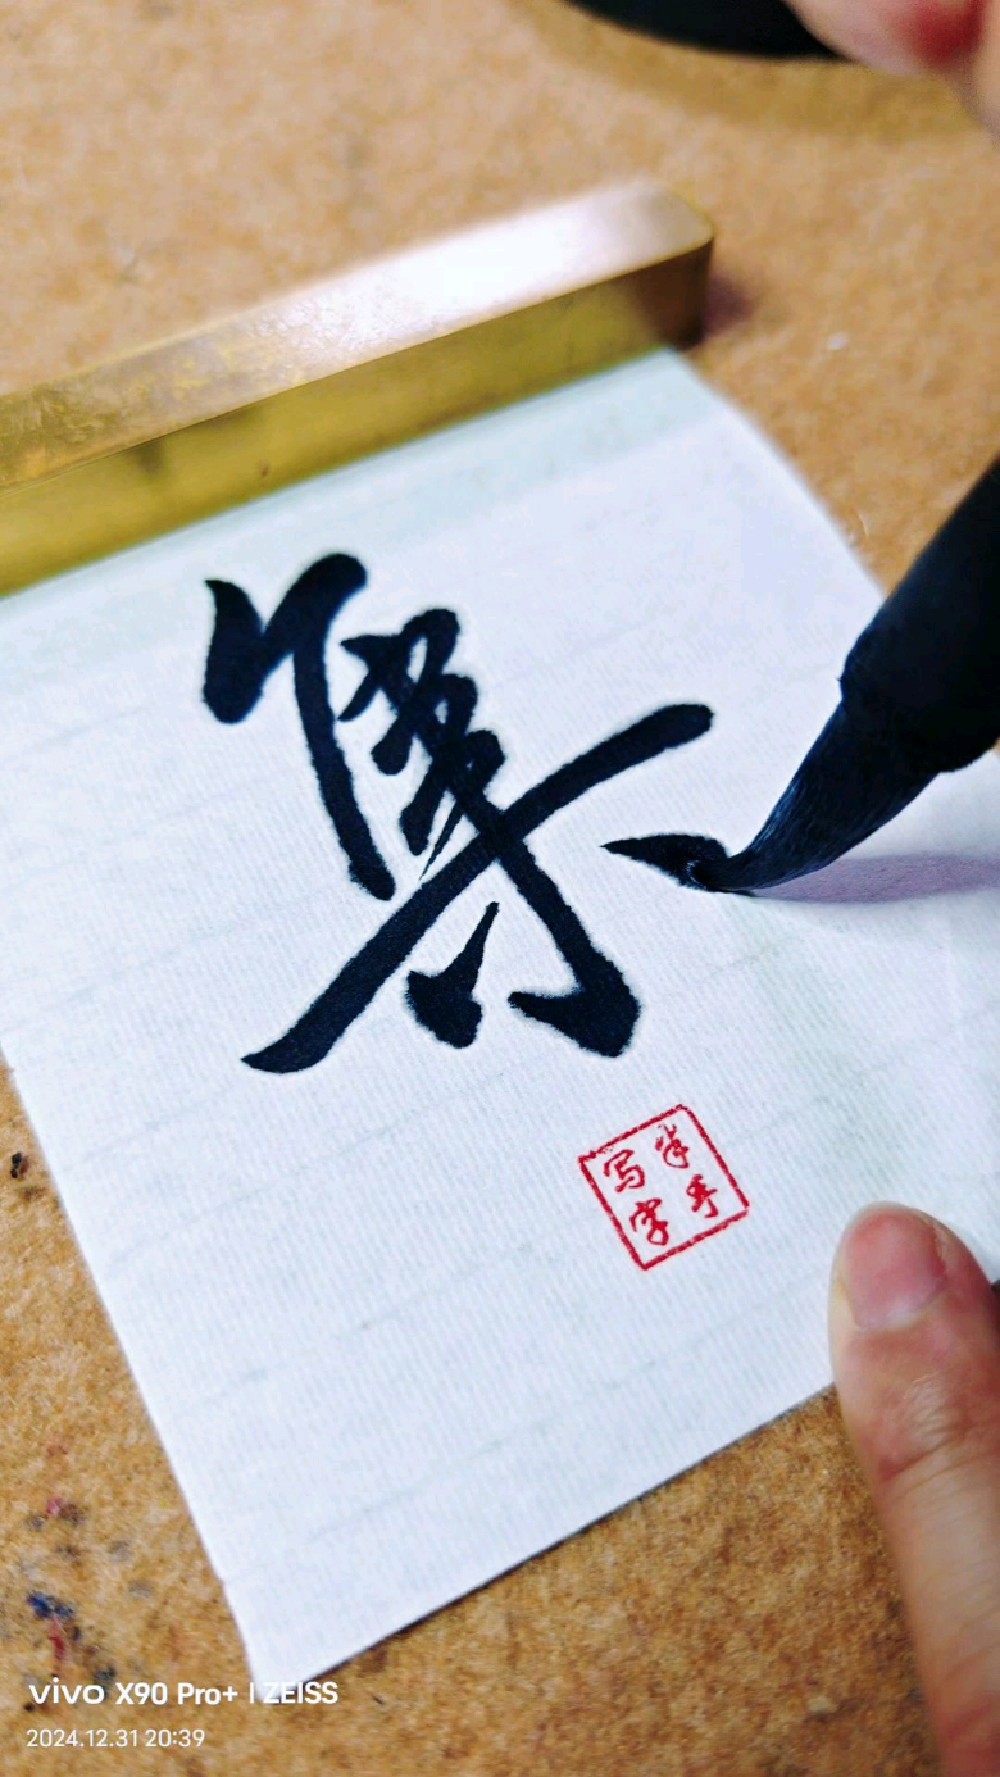 集
半手
写字
vivo X90 Pro+ | ZEISS
2024.12.31 20:39